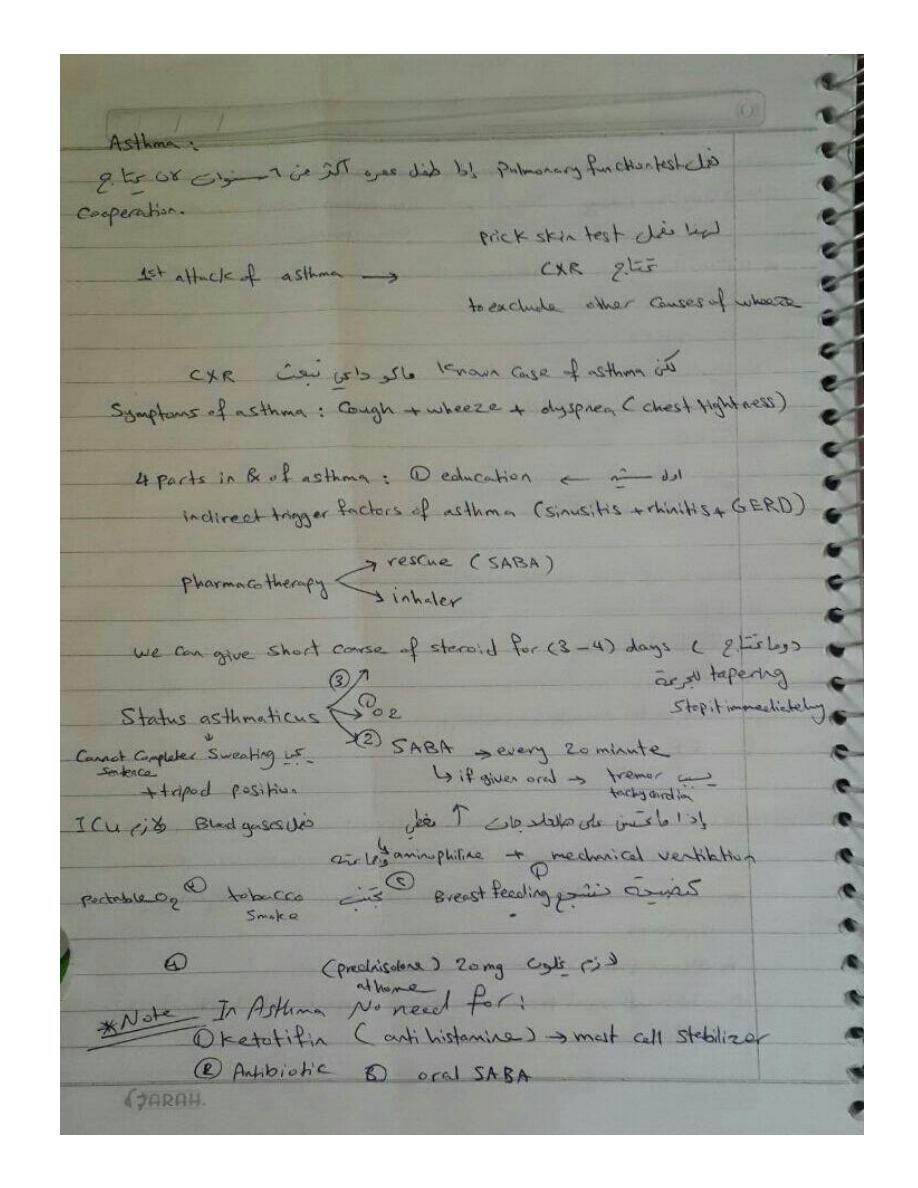 Asthma :
نعمل Pulmonary function test إذا طفل عمره أكثر من ٦ سنوات لان يحتاج
Cooperation.
لهذا نعمل prick skin test
1st attack of asthma → تحتاج CXR
to exclude other causes of wheeze
لكن Known case of asthma ماكو داعي نبعث CXR
Symptoms of asthma : Cough + wheeze + dyspnea ( chest tightness )
4 parts in Rx of asthma : ① education ← اول شيء
indirect trigger factors of asthma (sinusitis + rhinitis + GERD)
pharmacotherapy → rescue (SABA)
→ inhaler
we can give short course of steroid for (3-4) days ( وما تحتاج
tapering للجرعة
Stop it immediately
③ ↑
Status asthmaticus → ① O2
② SABA → every 20 minute
Cannot Complete Sentence Sweating
+ tripod position
↳ if given oral → يسبب tremor
tachycardia
إذا ما تحسن على هالعلاجات ↑ نعطي Blood gases لازم ICU
aminophiline + mechanical ventilation
كنصيحة نشجع Breast feeding ① تجنب ② tobacco Smoke
portable O2
④ لازم يخلون 20mg (prednisolone)
at home
*Note In Asthma No need for :
① Ketotifin ( anti histamine ) → mast cell stebilizer
② Antibiotic ③ oral SABA
FARAH.